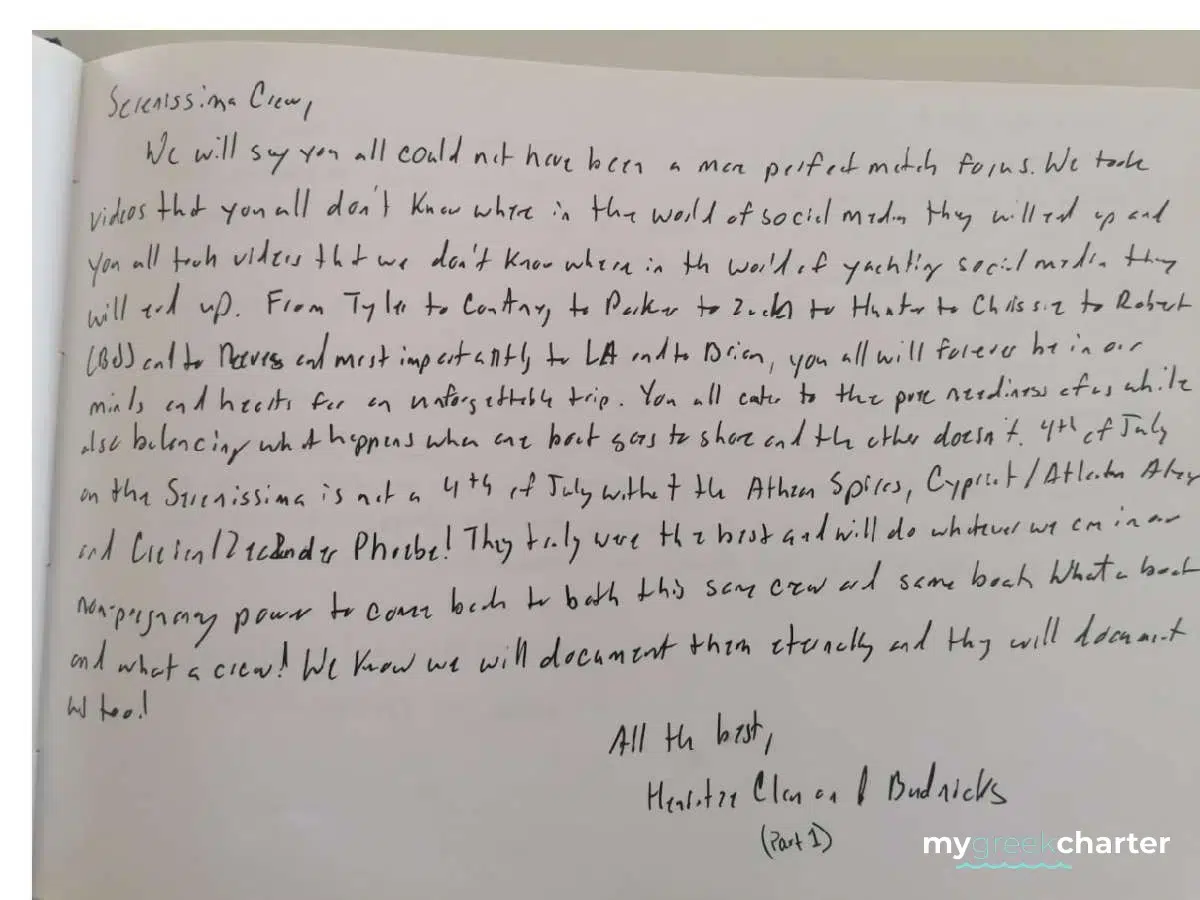 Serenissima Crew,
We will say you all could not have been a more perfect match for us. We took
videos that you all don't know where in the world of social media they will end up and
you all took videos that we don't know where in the world of yachting social media they
will end up. From Tyler to Courtney to Parker to Zach to Hunter to Chrissie to Robert
(Bob) and to and most importantly to LA and to Brian, you all will forever be in our
minds and hearts for an unforgettable trip. You all cater to the pure neediness of us while
also balancing what happens when one boat goes to shore and the other doesn't. 4th of July
on the Serenissima is not a 4th of July without the Athena Spices, Cypriot/
and Phoebe! They truly were the best and will do whatever we can in our
non-pregnancy power to come back to both this same crew and same boat. What a boat
and what a crew! We know we will document them eternally and they will document
us too!
All the best,
Clan and Budnicks
(Part 1)
mygreekcharter